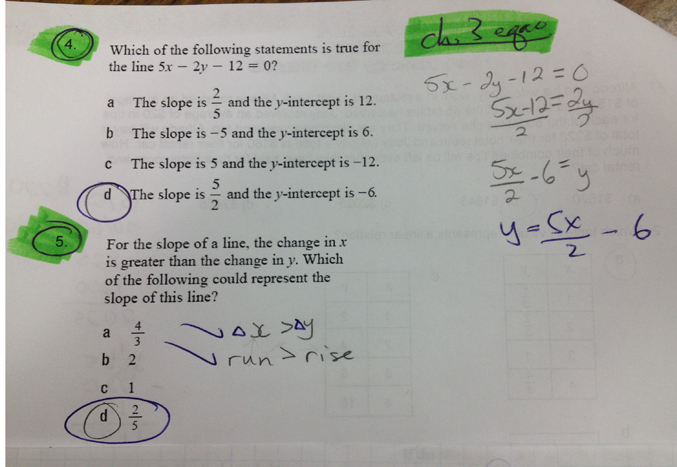 4.
Which of the following statements is true for
the line 5x − 2y − 12 = 0?
a The slope is 2/5 and the y-intercept is 12.
b The slope is −5 and the y-intercept is 6.
c The slope is 5 and the y-intercept is −12.
d The slope is 5/2 and the y-intercept is −6.
5.
For the slope of a line, the change in x
is greater than the change in y. Which
of the following could represent the
slope of this line?
a 4/3
b 2
c 1
d 2/5
Δx > Δy
run > rise
ch. 3
5x - 2y - 12 = 0
5x-12/2 = 2y/2
5x/2 - 6 = y
y = 5x/2 - 6